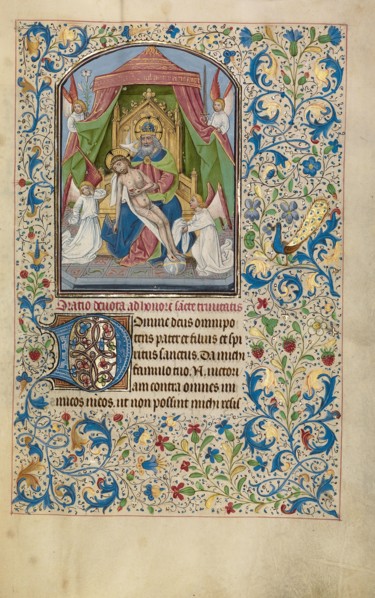 Oratio devota ad honorē sācte trinitatis
Domine deus omnipo
tens pater et filius et sp̄i
ritus sanctus. Da michi
famulo tuo .N. victori
am contra omnes ini
micos meos. ut non possint michi resis